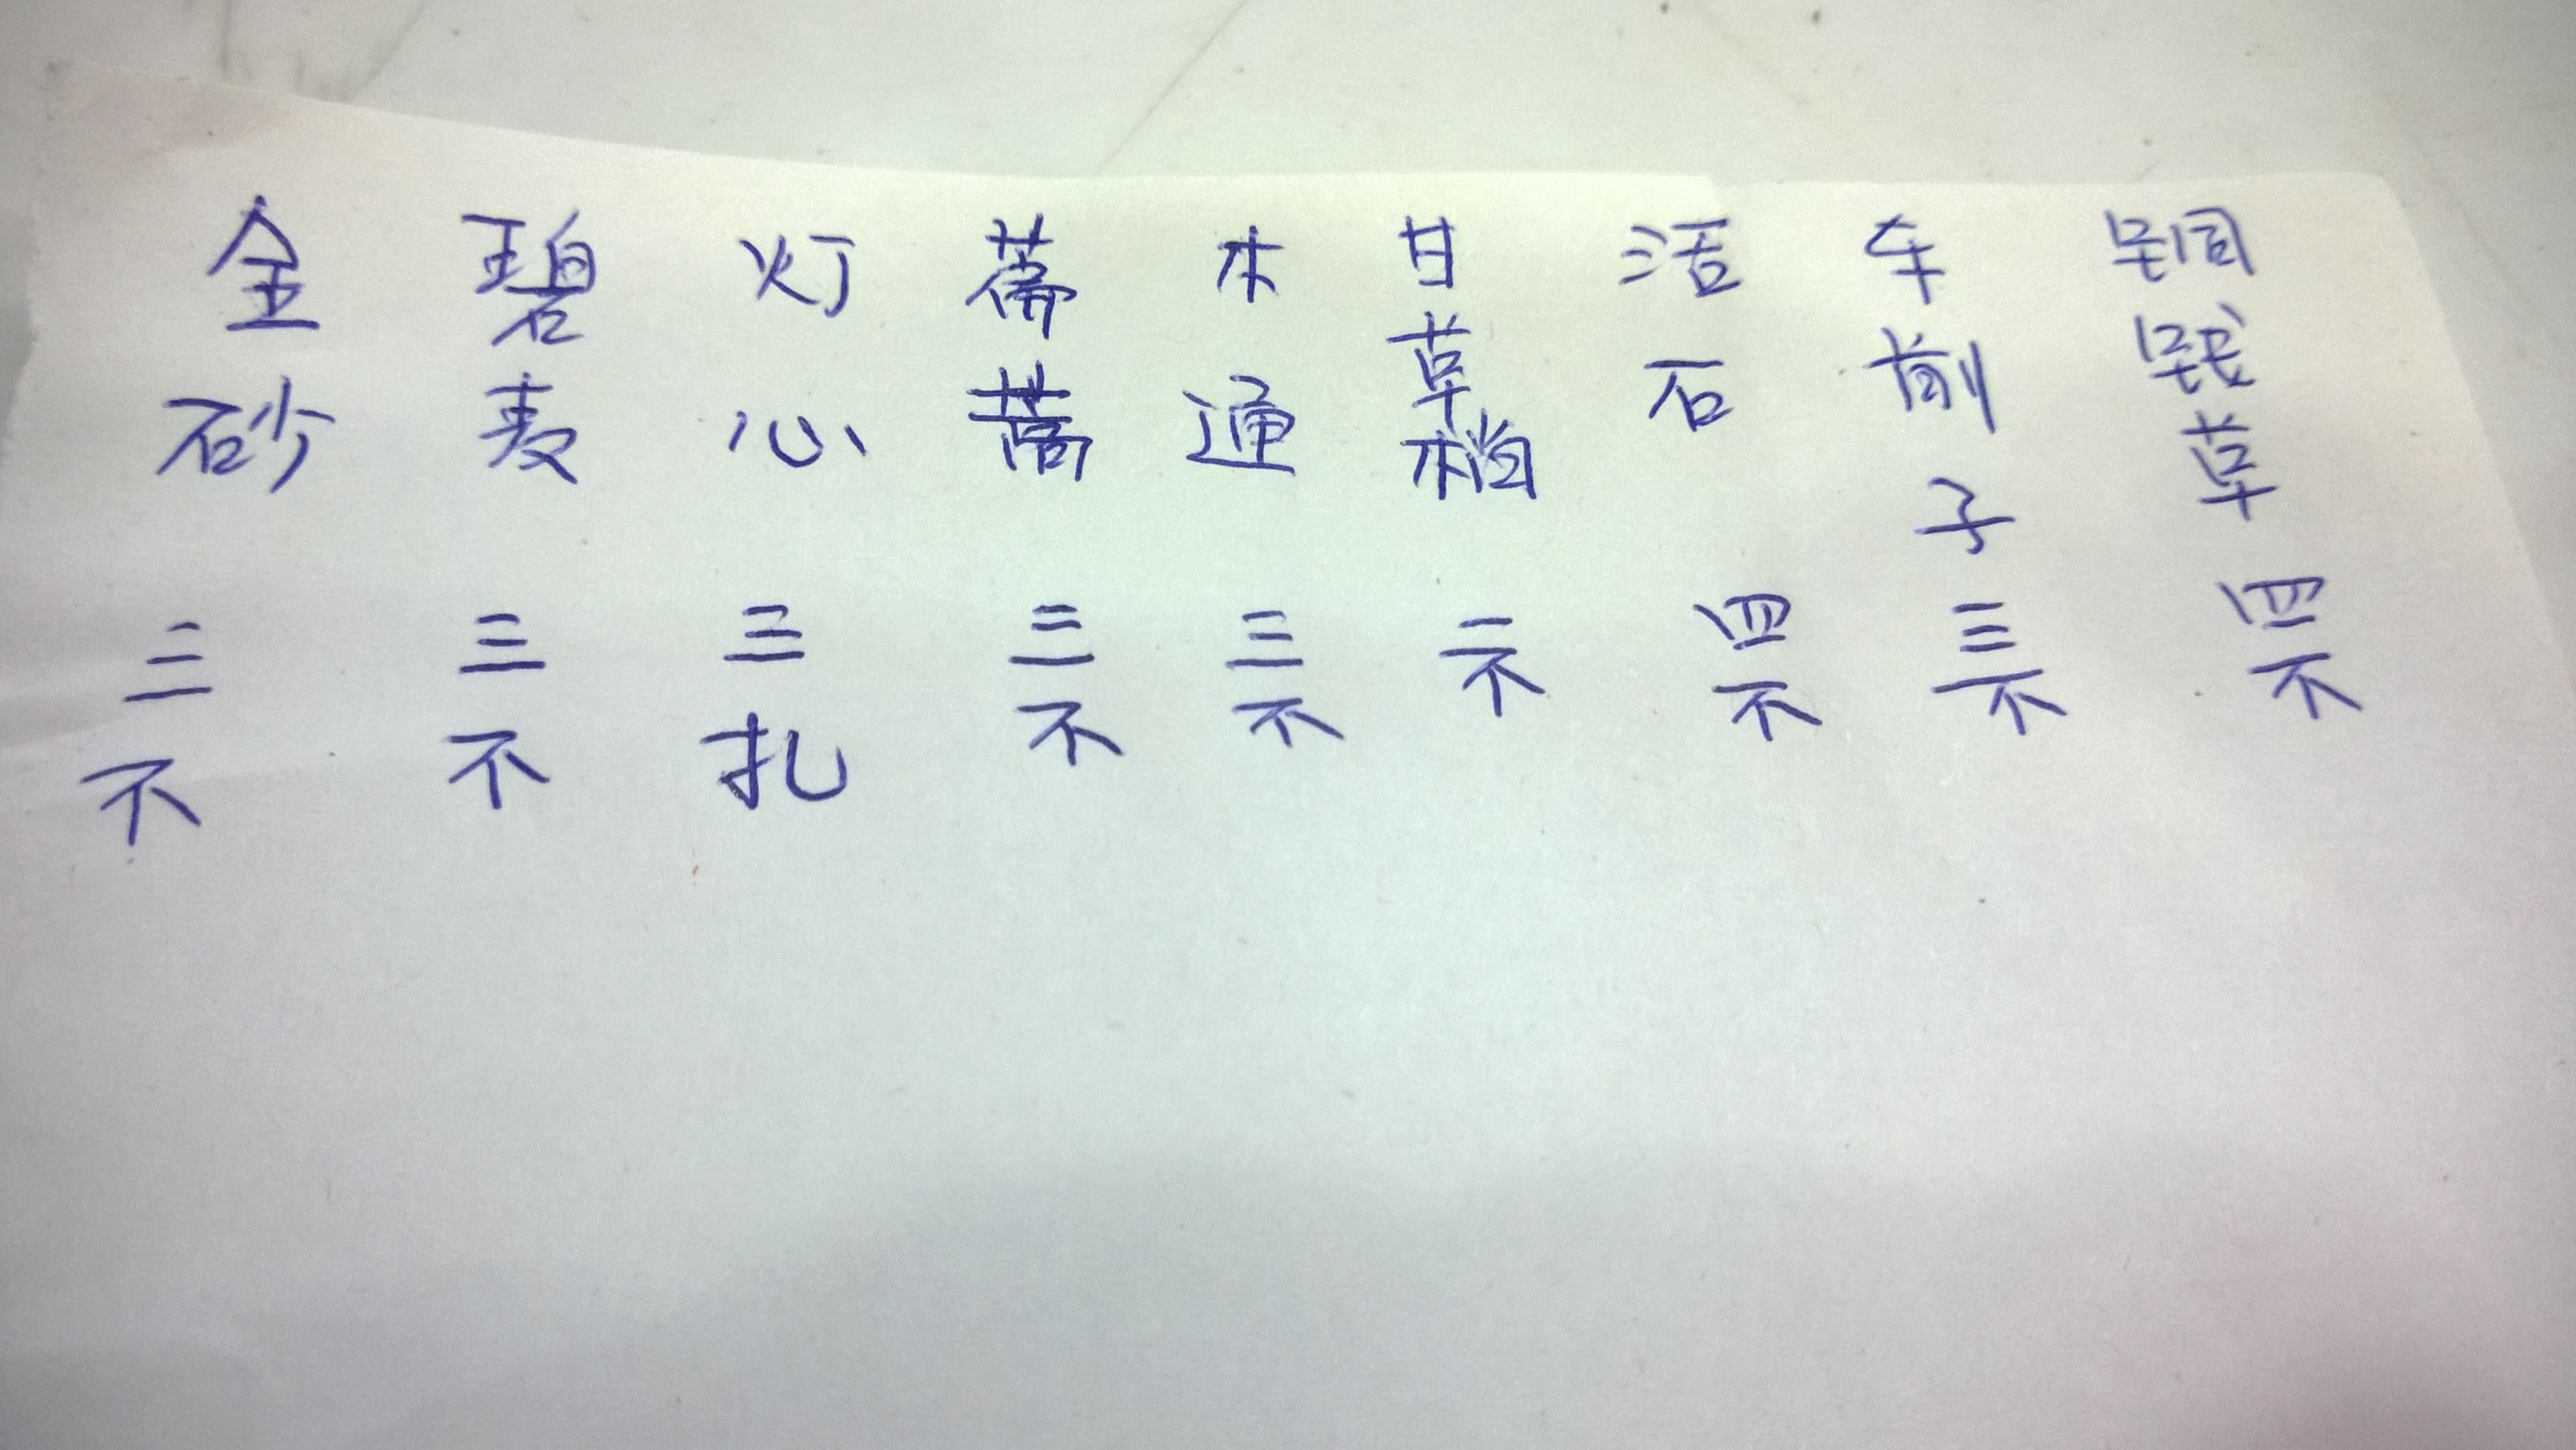 铜钱草 四不
车前子 三不
活石 四不
甘草梢 二不
木通 三不
萹蓄 三不
灯心 三扎
碧麦 三不
全砂 三不